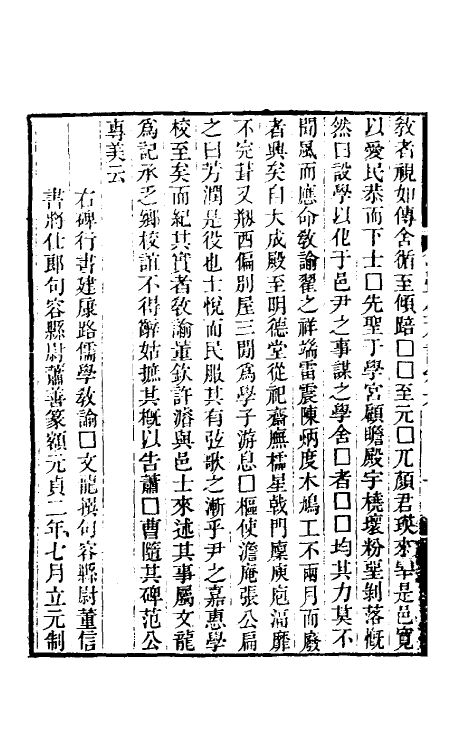 教者視如傳舍循至傾踣□□至元□兀顏君瑛來早是邑寬
以愛民恭而下士□先聖于學宮顧瞻殿宇橈壞粉堊剝落慨
然曰設學以化于邑尹之事謀之學舍□者□□均其力莫不
聞風而應命敎諭翟之祥端雷震陳炳度木鳩工不兩月而廢
者興矣自大成殿至明德堂從祀齋廡櫺星戟門廩庾庖湢靡
不完葺又剏西偏別屋三間為學子游息□樞使澹庵張公扁
之曰芳潤是役也士悅而民服其有弦歌之漸乎尹之嘉惠學
校至矣而紀其實者敎諭董欽許濬與邑士來述其事屬文龍
為記承乏鄉校誼不得辭姑摭其槪以告蕭□曹隨其碑范公
專美云
右碑行書建康路儒學敎諭□文龍撰句容縣尉董信
書將仕郎句容縣尉蕭善篆額元貞二年七月立元制